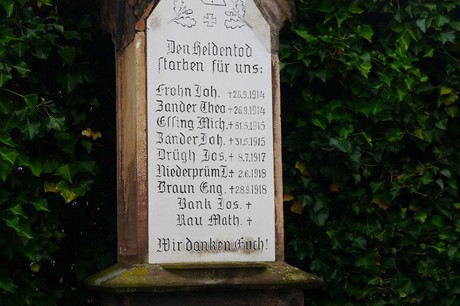 Den Heldentod
starben für uns:
Frohn Joh. †26.9.1914
Zander Theo †26.9.1914
Essing Mich. †31.5.1915
Zander Joh. †31.5.1915
Drügh Jos. †8.7.1917
Niederprüm J. †2.6.1918
Braun Eng. †28.9.1918
Bank Jos. †
Rau Math. †
Wir danken Euch!